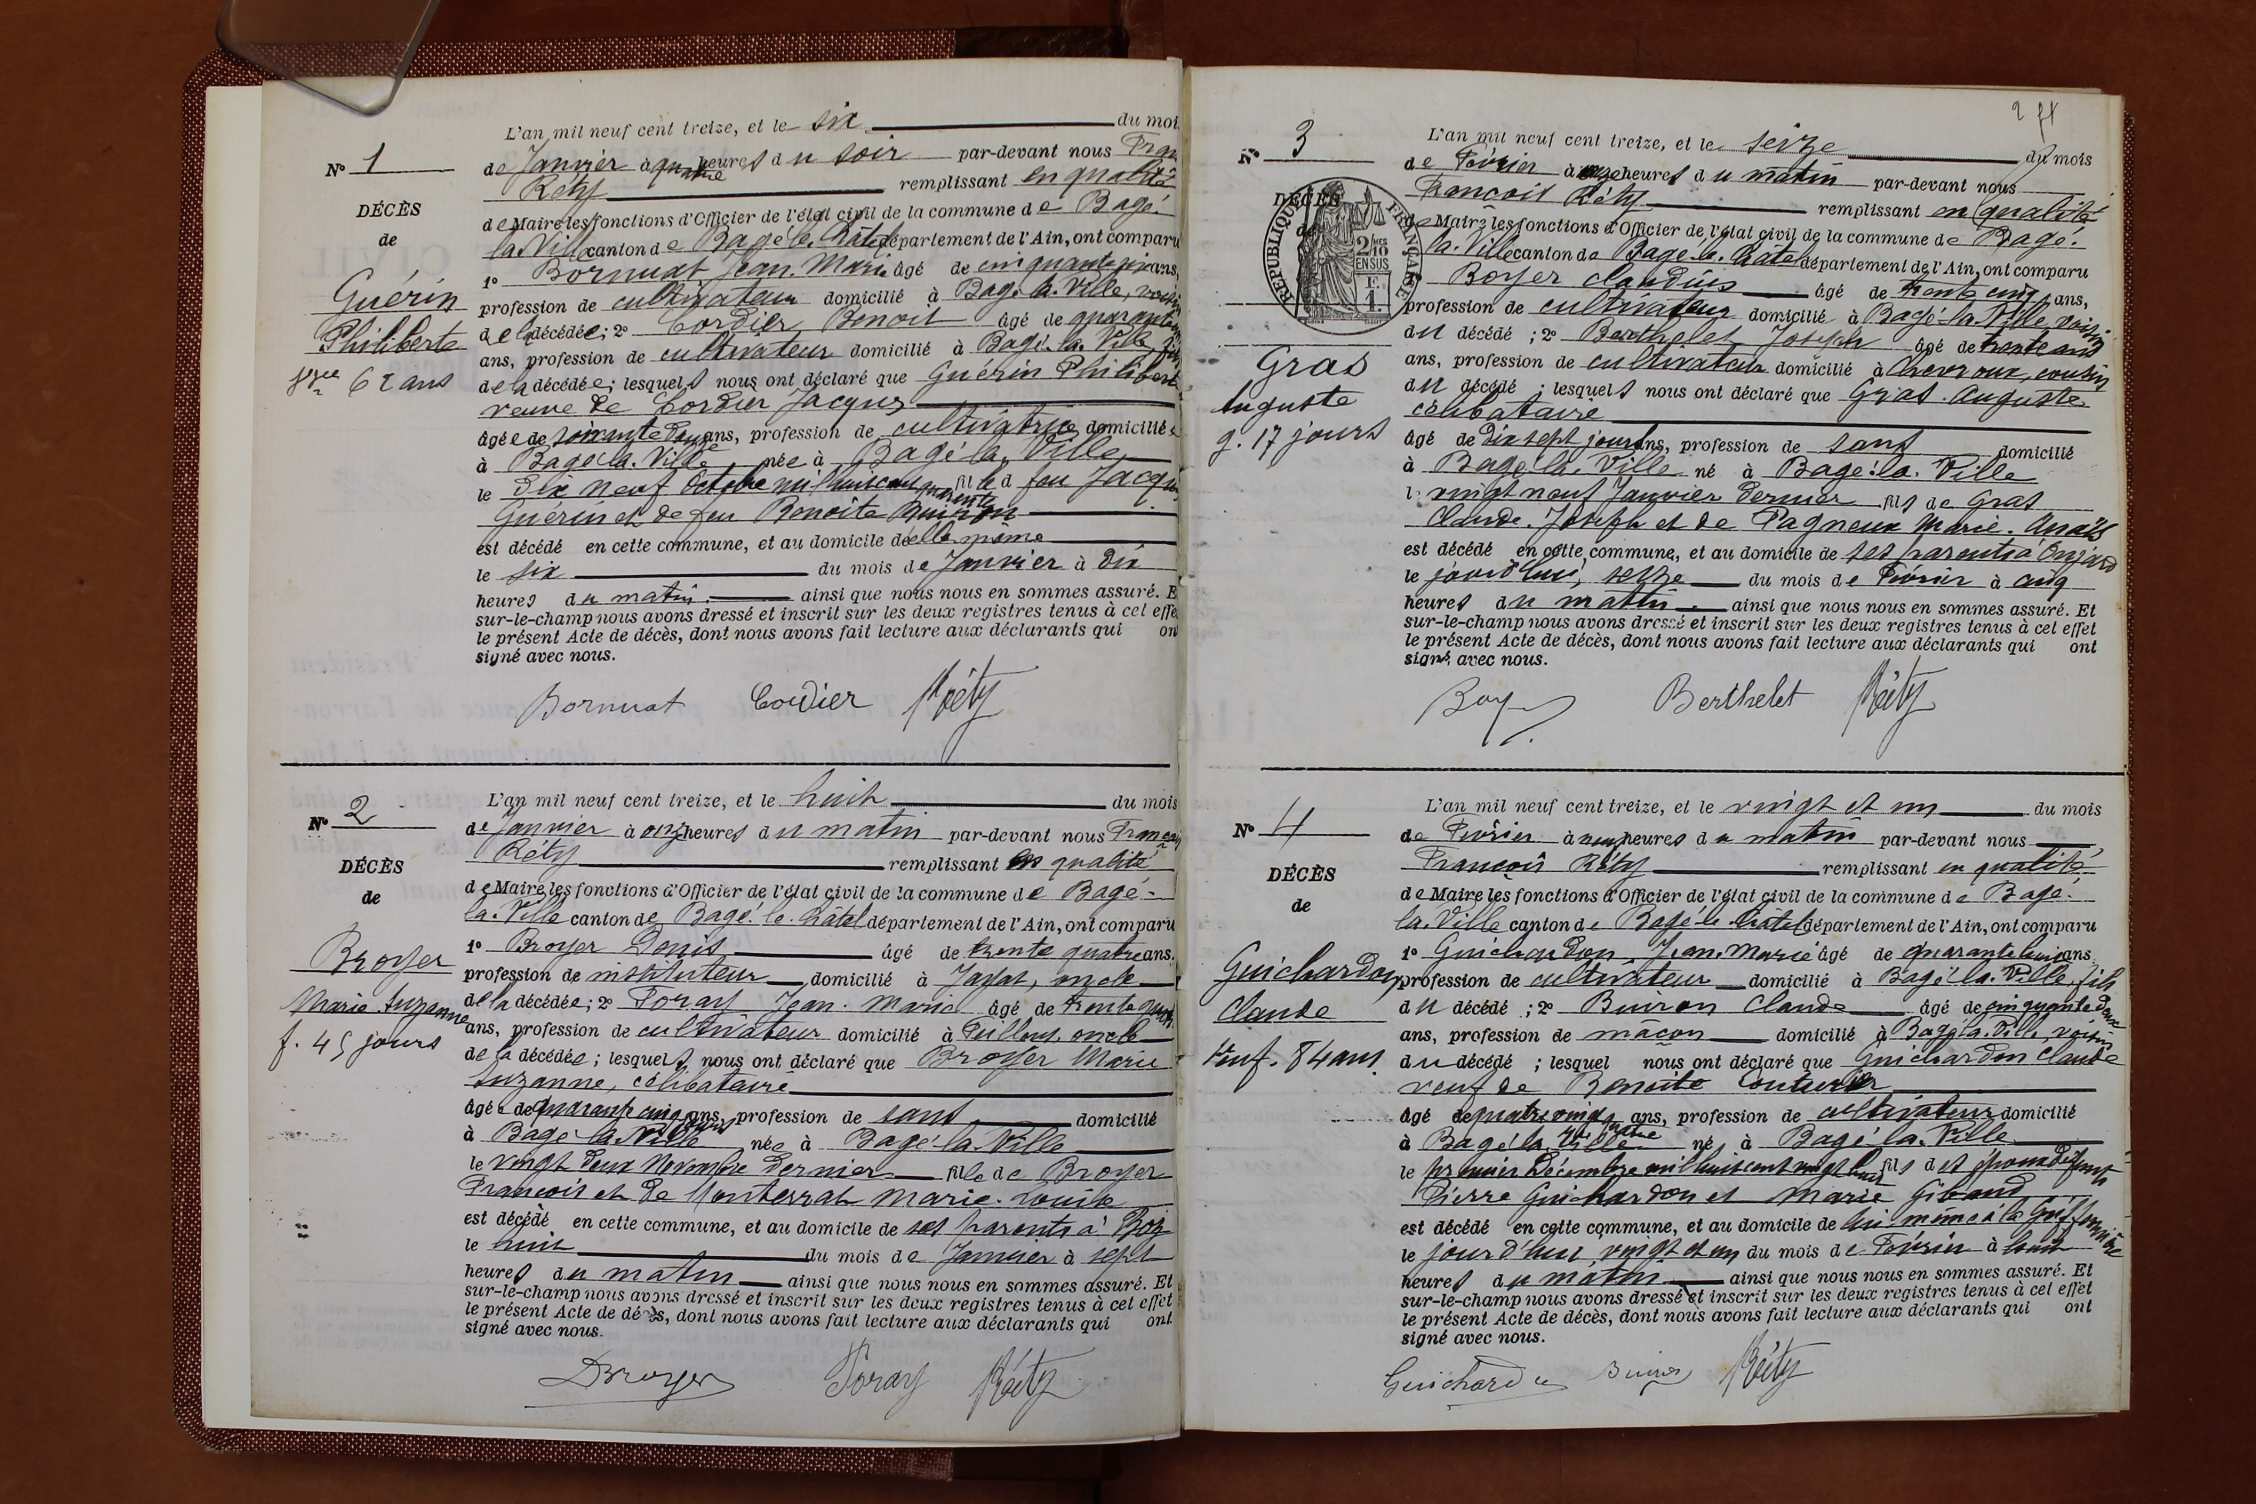 L'an mil neuf cent treize, et le six du moi
Nº 1
de Janvier à quatre heures du soir par-devant nous Fran
Réty remplissant en qualité
DÉCÈS
de
de Maire les fonctions d'Officier de l'état civil de la commune de Bagé-
la-Ville canton de Bagé-le-Châtel département de l'Ain, ont comparu
1º Bornuat Jean-Marie âgé de cinquante six ans,
Guérin
Philiberte
62 ans
profession de cultivateur domicilié à Bagé-la-Ville, voisin
de la décédée; 2º Cordier Benoit âgé de quarante
ans, profession de cultivateur domicilié à Bagé-la-Ville
de la décédée; lesquels nous ont déclaré que Guérin Philiberte
veuve de Cordier Jacques
âgée de soixante douze ans, profession de cultivatrice domicilié
à Bagé-la-Ville née à Bagé-la-Ville
le dix neuf Octobre mil huit cent quarante fille d feu Jacques
Guérin et de feu Benoîte Buiron
est décédé en cette commune, et au domicile de elle même
le six du mois de Janvier à dix
heures du matin ainsi que nous nous en sommes assuré. E
sur-le-champ nous avons dressé et inscrit sur les deux registres tenus à cel effe
le présent Acte de décès, dont nous avons fait lecture aux déclarants qui on
signé avec nous.
Bornuat Cordier Réty
L'an mil neuf cent treize, et le huit du mois
Nº 2
de Janvier à onze heures du matin par-devant nous François
Réty remplissant en qualité
DÉCÈS
de
de Maire les fonctions d'Officier de l'état civil de la commune de Bagé-
la-Ville canton de Bagé-le-Châtel département de l'Ain, ont comparu
1º Broyer Denis âgé de trente quatre ans,
Broyer
Marie Suzanne
f. 45 jours
profession de instituteur domicilié à Jayat, oncle
de la décédée; 2º Foray Jean-Marie âgé de trente neuf
ans, profession de cultivateur domicilié à oncle
de la décédée; lesquels nous ont déclaré que Broyer Marie
Suzanne, célibataire
âgée de quarante cinq jours ans, profession de sans domicilié
à Bagé-la-Ville née à Bagé-la-Ville
le vingt deux Novembre dernier fille de Broyer
François et de Monterrat Marie-Louise
est décédé en cette commune, et au domicile de ses parents à
le huit du mois de Janvier à sept
heures du matin ainsi que nous nous en sommes assuré. Et
sur-le-champ nous avons dressé et inscrit sur les deux registres tenus à cel effet
le présent Acte de décès, dont nous avons fait lecture aux déclarants qui ont
signé avec nous.
DBroyer Foray Réty
2
L'an mil neuf cent treize, et le seize du mois
Nº 3
de Février à onze heures du matin par-devant nous
François Réty remplissant en qualité
DÉCÈS
de
RÉPUBLIQUE FRANÇAISE
2/10 EN SUS
F. 1.
de Maire les fonctions d'Officier de l'état civil de la commune de Bagé-
la-Ville canton de Bagé-le-Châtel département de l'Ain, ont comparu
Boyer Claudius âgé de trente cinq ans,
profession de cultivateur domicilié à Bagé-la-Ville, voisin
du décédé; 2º Berthelet Joseph âgé de trente ans
Gras
Auguste
g. 17 jours
ans, profession de cultivateur domicilié à Chevroux, cousin
du décédé; lesquels nous ont déclaré que Gras Auguste
célibataire
âgé de dix sept jours ans, profession de sans domicilié
à Bagé-la-Ville né à Bagé-la-Ville
le vingt neuf Janvier dernier fils de Gras
Claude-Joseph et de Pagneux Marie-Anaïs
est décédé en cette commune, et au domicile de ses parents à
le jourd'hui, seize du mois de Février à cinq
heures du matin ainsi que nous nous en sommes assuré. Et
sur-le-champ nous avons dressé et inscrit sur les deux registres tenus à cel effet
le présent Acte de décès, dont nous avons fait lecture aux déclarants qui ont
signé avec nous.
Boyer Berthelet Réty
L'an mil neuf cent treize, et le vingt et un du mois
Nº 4
de Février à neuf heures du matin par-devant nous
François Réty remplissant en qualité
DÉCÈS
de
de Maire les fonctions d'Officier de l'état civil de la commune de Bagé-
la-Ville canton de Bagé-le-Châtel département de l'Ain, ont comparu
1º Guichardon Jean-Marie âgé de quarante huit ans,
Guichardon
Claude
veuf. 84 ans
profession de cultivateur domicilié à Bagé-la-Ville, fils
du décédé; 2º Buiron Claude âgé de cinquante deux
ans, profession de maçon domicilié à Bagé-la-Ville, voisin
du décédé; lesquel nous ont déclaré que Guichardon Claude
veuf de Benoîte Couturier
âgé de quatre vingt quatre ans, profession de cultivateur domicilié
à Bagé-la-Ville né à Bagé-la-Ville
le premier Décembre mil huit cent vingt huit fils d et époux défunts
Pierre Guichardon et Marie Giband
est décédé en cette commune, et au domicile de lui-même à la
le jourd'hui vingt et un du mois de Février à huit
heures du matin ainsi que nous nous en sommes assuré. Et
sur-le-champ nous avons dressé et inscrit sur les deux registres tenus à cel effet
le présent Acte de décès, dont nous avons fait lecture aux déclarants qui ont
signé avec nous.
Guichardon Buiron Réty